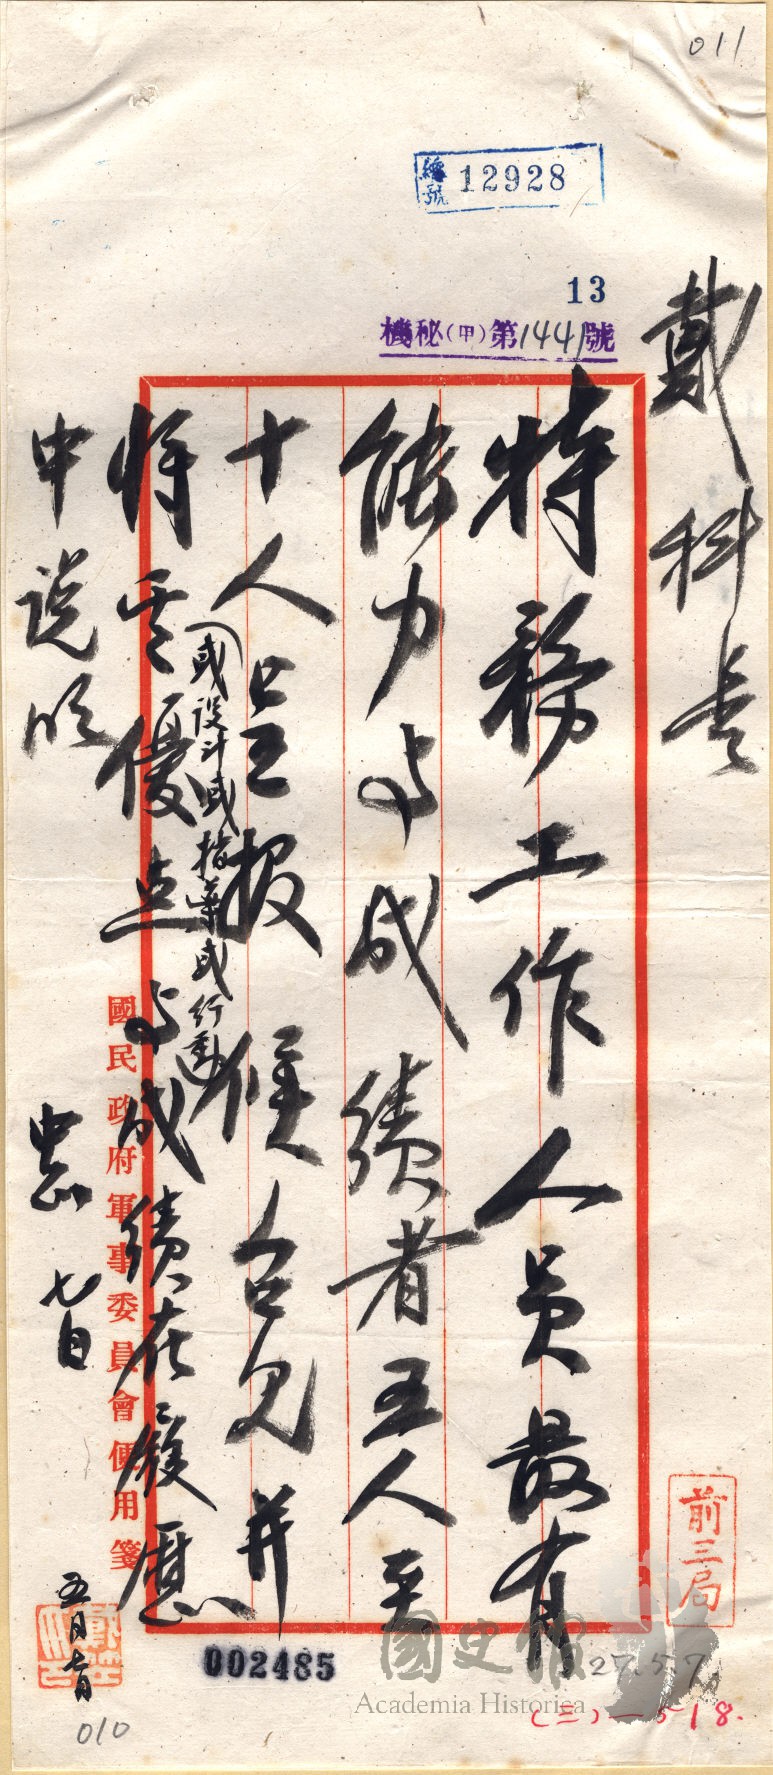 011
編號 12928
13
機秘(甲)第1441號
戴科長
特務工作人員最有
能力与成績者五人至
十人呈報候召見并
(或設計或指導或行動)
將其優点与成績在履歷
中說明
中正 七日
國民政府軍事委員會便用箋
五月七日
前三局
002485
國史館
Academia Historica
27.5.7
(三)一518.
010